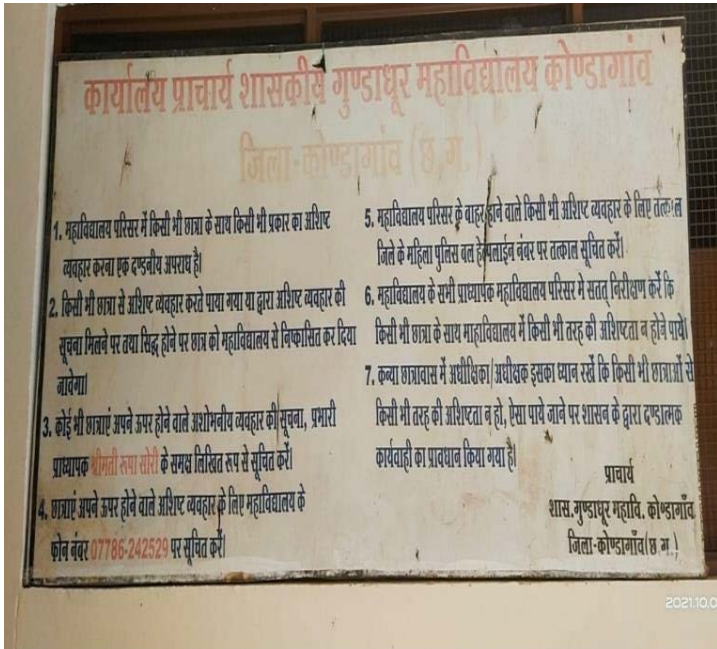 कार्यालय प्राचार्य शासकीय गुण्डाधूर महाविद्यालय कोण्डागांव
जिला-कोण्डागांव (छ.ग.)
1. महाविद्यालय परिसर में किसी भी छात्रा के साथ किसी भी प्रकार का अशिष्ट
व्यवहार करना एक दण्डनीय अपराध है।
2. किसी भी छात्रा से अशिष्ट व्यवहार करते पाया गया या द्वारा अशिष्ट व्यवहार की
सूचना मिलने पर तथा सिद्ध होने पर छात्र को महाविद्यालय से निष्कासित कर दिया
जावेगा।
3. कोई भी छात्राएं अपने ऊपर होने वाले अशोभनीय व्यवहार की सूचना, प्रभारी
प्राध्यापक श्रीमती रूपा सोरी के समक्ष लिखित रूप से सूचित करें।
4. छात्राएं अपने ऊपर होने वाले अशिष्ट व्यवहार के लिए महाविद्यालय के
फोन नंबर 07786-242529 पर सूचित करें।
5. महाविद्यालय परिसर के बाहर होने वाले किसी भी अशिष्ट व्यवहार के लिए तत्काल
जिले के महिला पुलिस बल हेल्पलाईन नंबर पर तत्काल सूचित करें।
6. महाविद्यालय के सभी प्राध्यापक महाविद्यालय परिसर मे सतत् निरीक्षण करें कि
किसी भी छात्रा के साथ माहाविद्यालय में किसी भी तरह की अशिष्टता न होने पाये।
7. कन्या छात्रावास में अधीक्षिका/अधीक्षक इसका ध्यान रखें कि किसी भी छात्राओं से
किसी भी तरह की अशिष्टता न हो, ऐसा पाये जाने पर शासन के द्वारा दण्डात्मक
कार्यवाही का प्रावधान किया गया है।
प्राचार्य
शास.गुण्डाधूर महावि. कोण्डागाँव
जिला-कोण्डागाँव(छ.ग.)